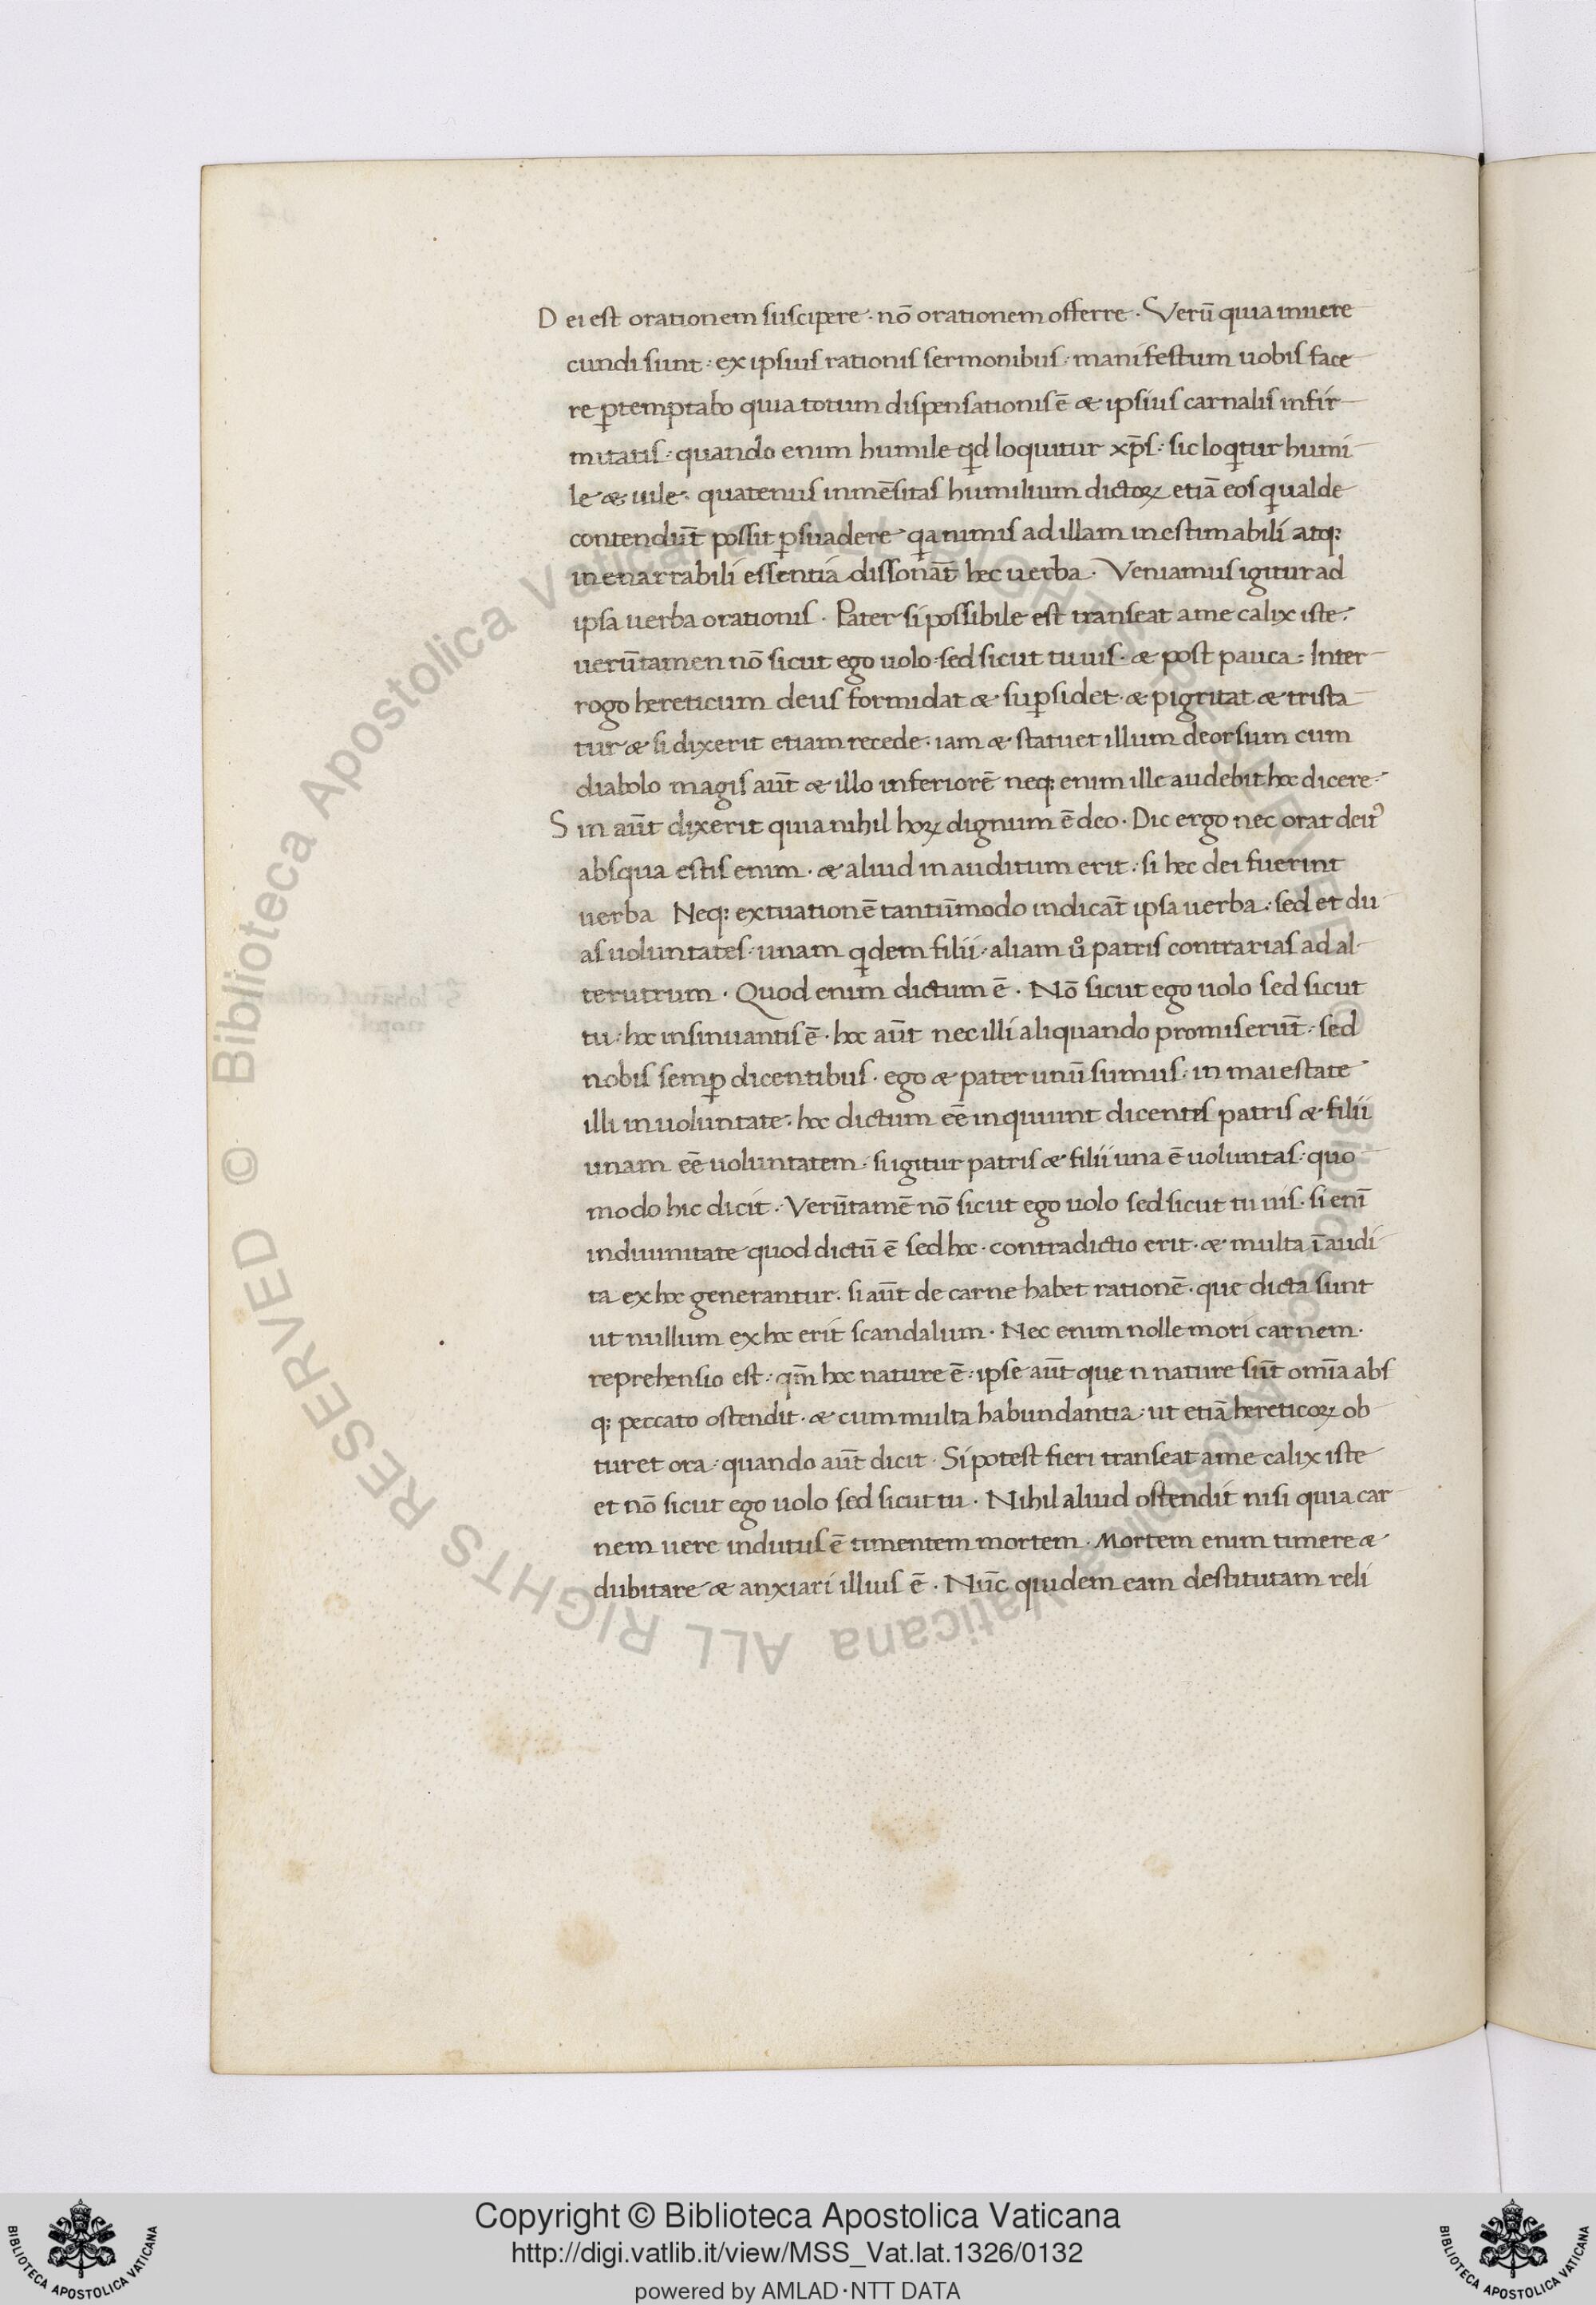 Dei est orationem suscipere · nō orationem offerre · Verū quia inuere
cundi sunt · ex ipsius rationis sermonibus · manifestum uobis face
re ꝑtemptabo quia totum dispensationis ē & ipsius carnalis infir
mitatis · quando enim humile qͥd loquitur xp̄s · sic loqͥtur humi
le & uile · quatenus inmēsitas humilium dictoꝝ etiā eos qͥ ualde
contendūt possit ꝑsuadere · qͣa nimis ad illam inestimabili atq:
inenarrabili essentiā dissonāt hec uerba · Veniamus igitur ad
ipsa uerba orationis · Pater si possibile est transeat a me calix iste ·
uerūtamen nō sicut ego uolo · sed sicut tu uis · & post pauca · Inter
rogo hereticum deus formidat & suꝑsidet · & pigritat & trista
tur & si dixerit etiam recede · iam & statuet illum deorsum cum
diabolo magis aūt & illo inferiorē neq: enim ille audebit hoc dicere ·
Sin aūt dixerit quia nihil hoꝝ dignum ē deo · Dic ergo nec orat deitꝰ
absqua estis enim · & aliud inauditum erit · si hec dei fuerint
uerba Neq: extuationē tantūmodo indicāt ipsa uerba · sed et du
as uoluntates · unam qͥdem filii · aliam uͦ patris contrarias ad al
terutrum · Quod enim dictum ē · Nō sicut ego uolo sed sicut
tu · hoc insinuantis ē · hoc aūt nec illi aliquando promiserūt · sed
nobis semꝑ dicentibus · ego & pater unū sumus · in maiestate
illi in uoluntate · hoc dictum eē inquiunt dicentes patris & filii
unam eē uoluntatem · si igitur patris & filii una ē uoluntas · quo
modo hic dicit · Verūtamē nō sicut ego uolo sed sicut tu uis · si enī
in diuinitate quod dictū ē sed hoc · contradictio erit · & multa īaudi
ta ex hoc generantur · si aūt de carne habet rationē · que dicta sunt
ut nullum ex hoc erit scandalum · Nec enim nolle mori carnem ·
reprehensio est · qm̄ hoc nature ē · ipse aūt que n nature sūt omīa abs
q: peccato ostendit · & cum multa habundantia · ut etiā hereticoꝝ ob
turet ora · quando aūt dicit · Si potest fieri transeat a me calix iste
et nō sicut ego uolo sed sicut tu · Nihil aliud ostendit nisi quia car
nem uere indutus ē timentem mortem · Mortem enim timere &
dubitare & anxiari illius ē · Nūc quidem eam destitutam reli
Copyright © Biblioteca Apostolica Vaticana
http://digi.vatlib.it/view/MSS_Vat.lat.1326/0132
powered by AMLAD·NTT DATA
BIBLIOTECA APOSTOLICA VATICANA
BIBLIOTECA APOSTOLICA VATICANA
© Biblioteca Apostolica Vaticana ALL RIGHTS RESERVED
© Biblioteca Apostolica Vaticana ALL RIGHTS RESERVED